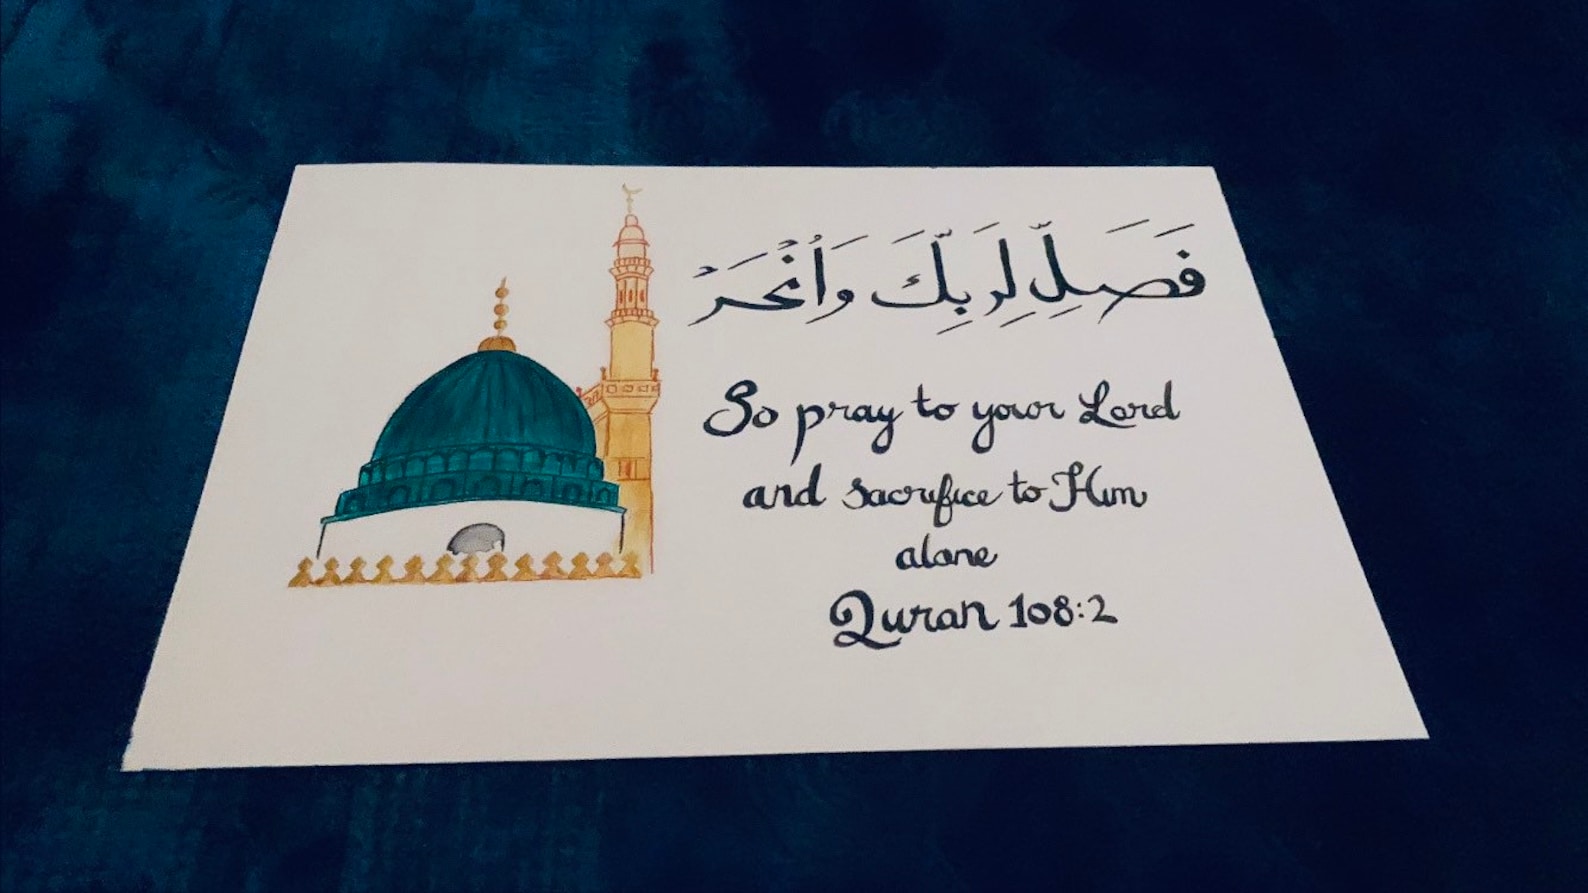 فَصَلِّ لِرَبِّكَ وَٱنْحَرْ
So pray to your Lord
and sacrifice to Him
alone
Quran 108:2